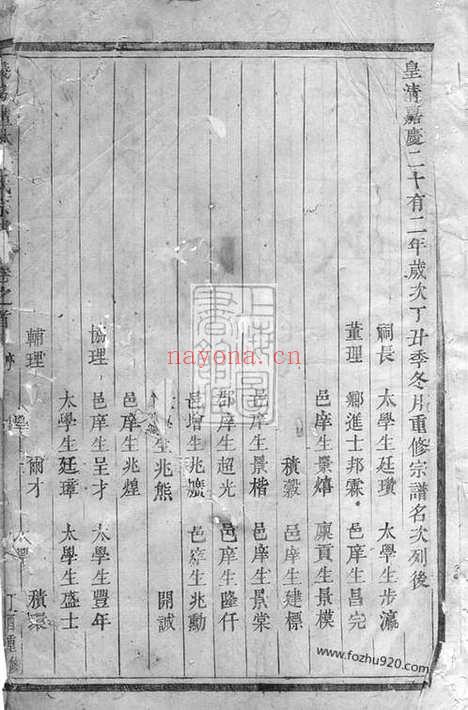 皇清嘉慶二十有二年歲次丁丑季冬月重修宗譜名次列後
嗣長 太學生廷瓚 太學生步瀛
董理 鄉進士邦霖 邑庠生昌完
邑庠生景熺 廩貢生景模
積穀 邑庠生建標
邑庠生景楷 邑庠生景棠
郡庠生超光 邑庠生隆仟
邑增生兆 邑庠生兆勳
生兆熊 開誠
邑庠生兆煌
協理 邑庠生呈才 太學生豐年
太學生廷璋 太學生盛士
輔理 爾才 積
卷之首
丁酉重修
nayona.cn
www.fozhu920.com